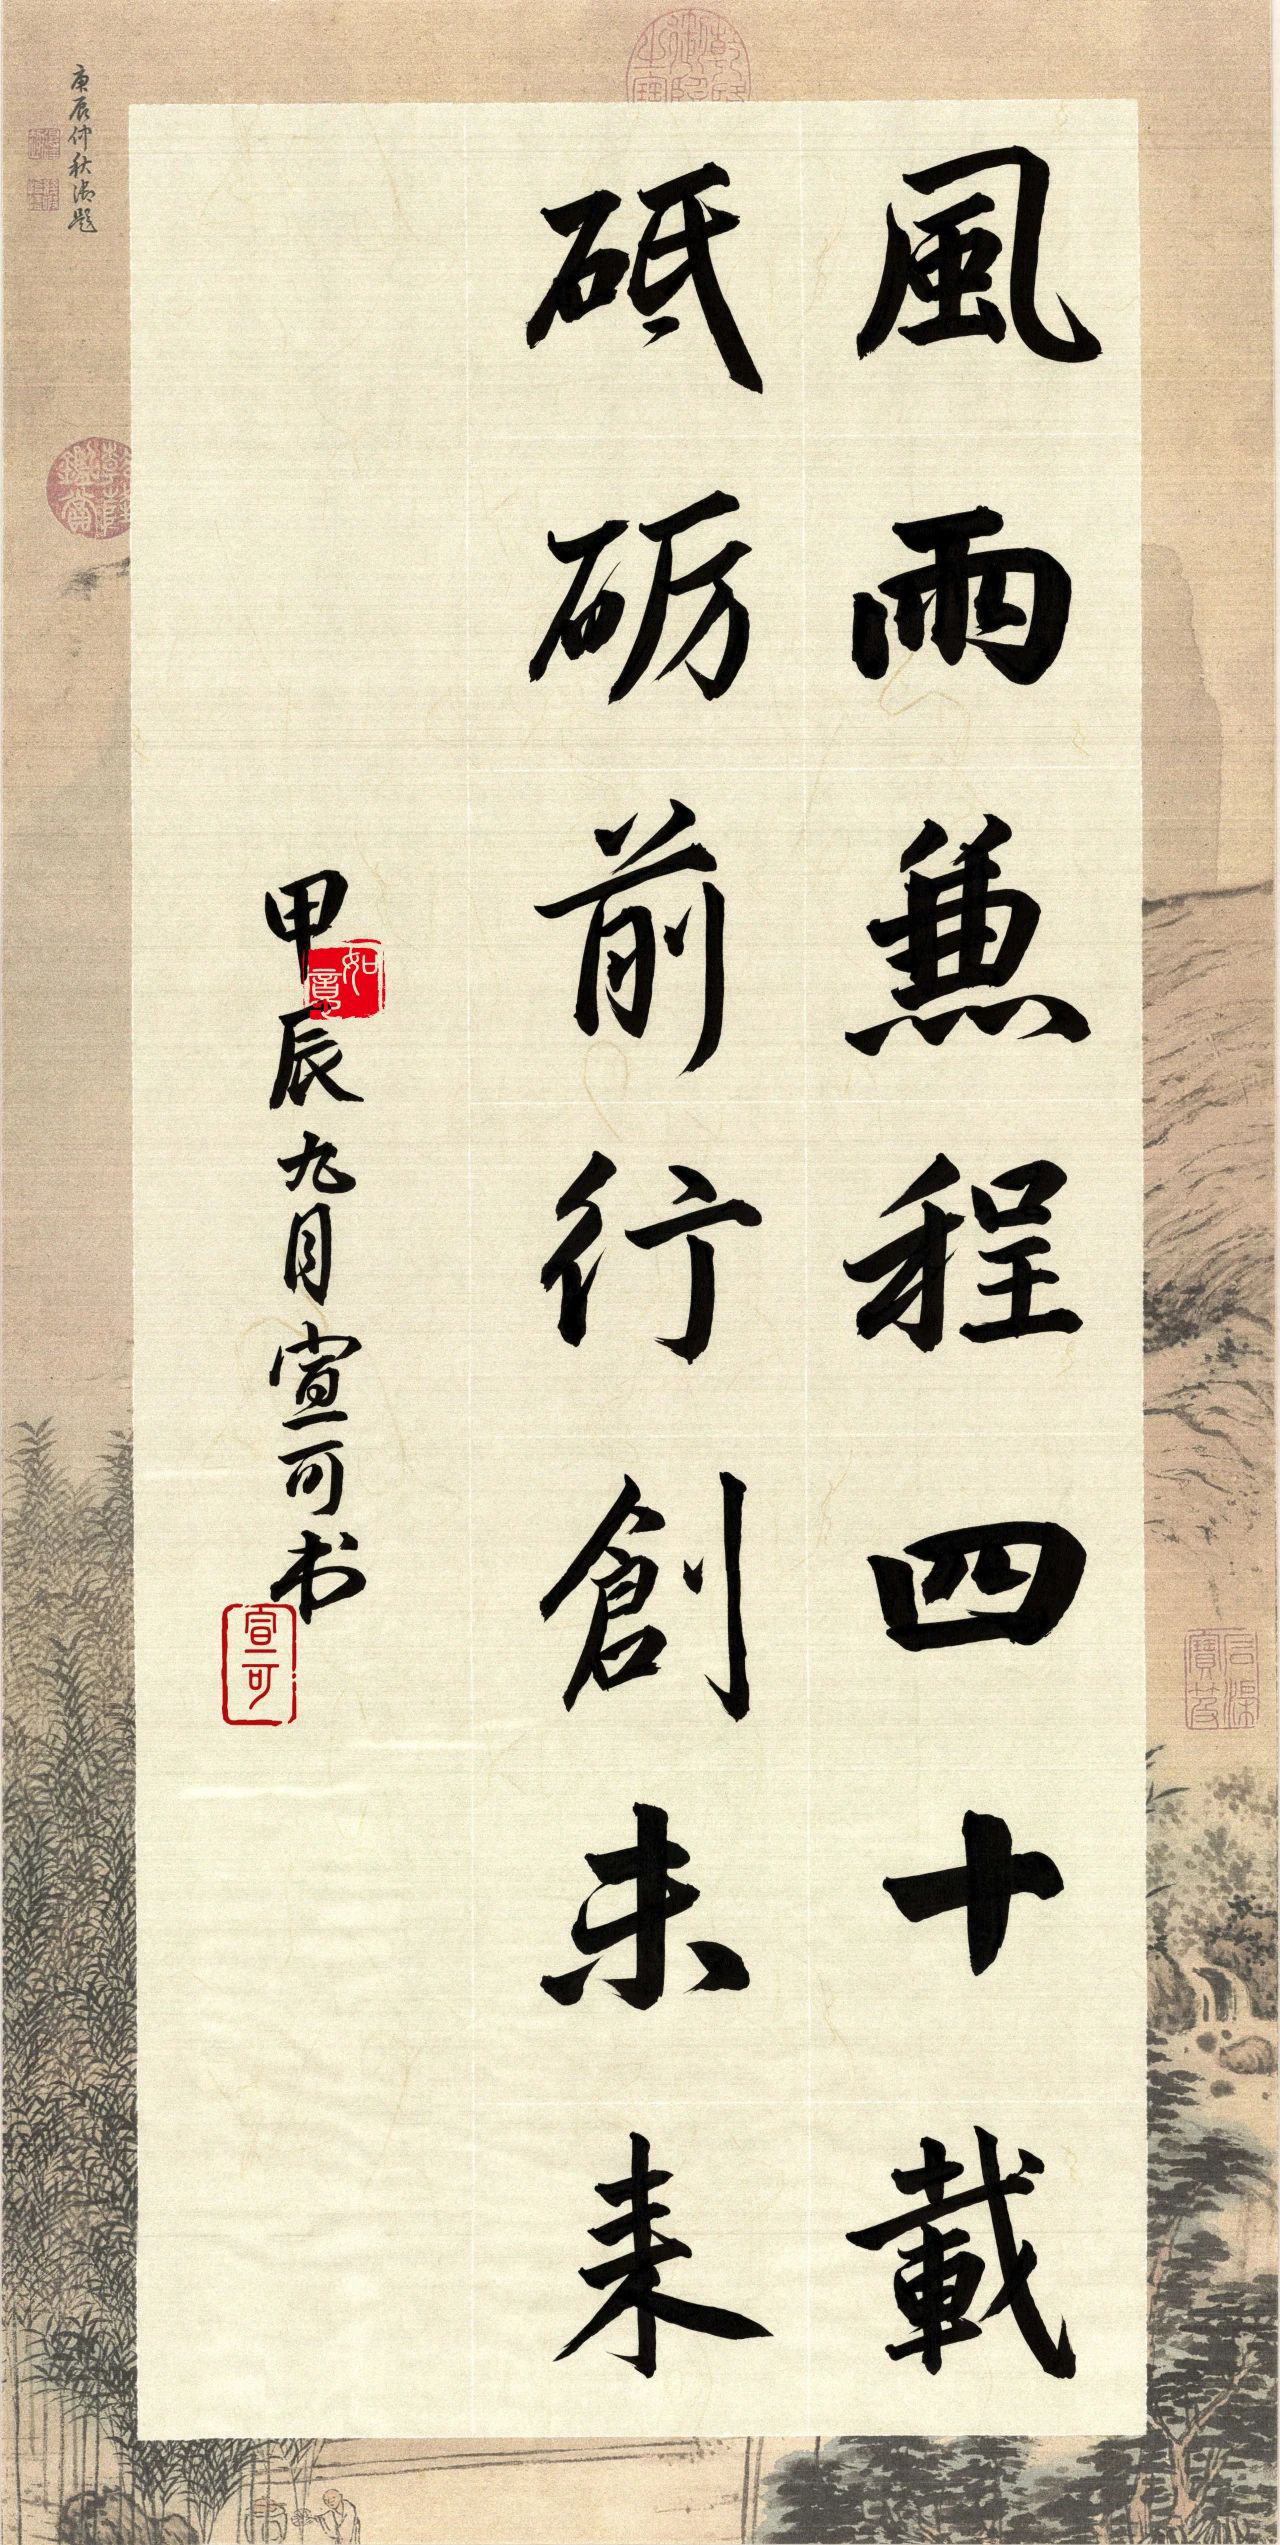 風雨兼程四十載
砥砺前行創未来
甲辰九月宣可书
如意
宣可
庚辰仲秋御題